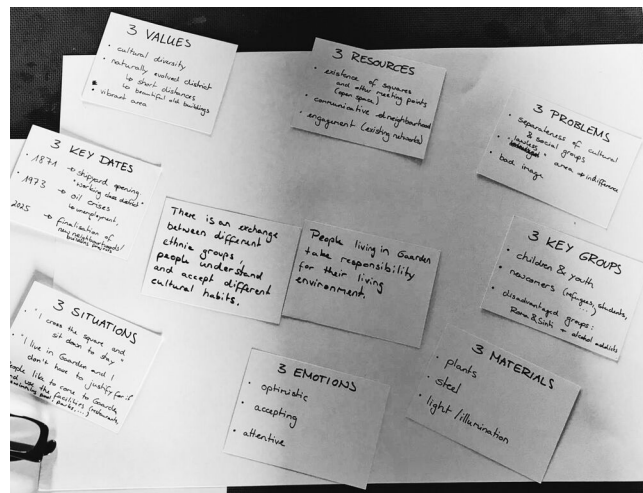 3 VALUES
• cultural diversity
• naturally evolved district
↳ short distances
↳ beautiful old buildings
• vibrant area
3 RESOURCES
• existence of squares
and other meeting points
(open space)
• communicative neighbourhood
• engagement (existing networks)
3 PROBLEMS
• separateness of cultural
& social groups
• lawless area → indifference
• bad image
3 KEY DATES
• 1871 → shipyard opening
"working class district"
• 1973 → oil crises
→ unemployment,
2025 → finalisation of
new neighbourhoods/
building projects
There is an exchange
between different
ethnic groups,
people understand
and accept different
cultural habits.
People living in Gaarden
take responsibility
for their living
environment.
3 KEY GROUPS
• children & youth
• newcomers (refugees, students,
...)
• disadvantaged groups:
Roma & Sinti - alcohol addicts
3 SITUATIONS
• "I cross the square and
sit down to stay"
• "I live in Gaarden and I
don't have to justify for it
people like to come to Gaarden
and use the facilities (restaurants,
swimming pool, parks, ...)
3 EMOTIONS
• optimistic
• accepting
• attentive
3 MATERIALS
• plants
• steel
• light/illumination